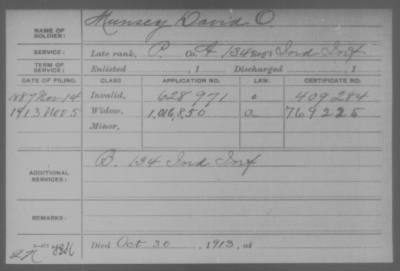 NAME OF SOLDIER: Munsey David O.
SERVICE: Late rank, P. Co. A 134 Reg't Ind Inf
TERM OF SERVICE: Enlisted , 1 Discharged , 1
DATE OF FILING. CLASS APPLICATION NO. LAW. CERTIFICATE NO.
1887 Nov 14 Invalid, 628971 409284
1913 Nov 5 Widow, 1,016,850 a 769225
Minor,
ADDITIONAL SERVICES: B. 134 Ind Inf
REMARKS:
Died Oct 30, 1913, at